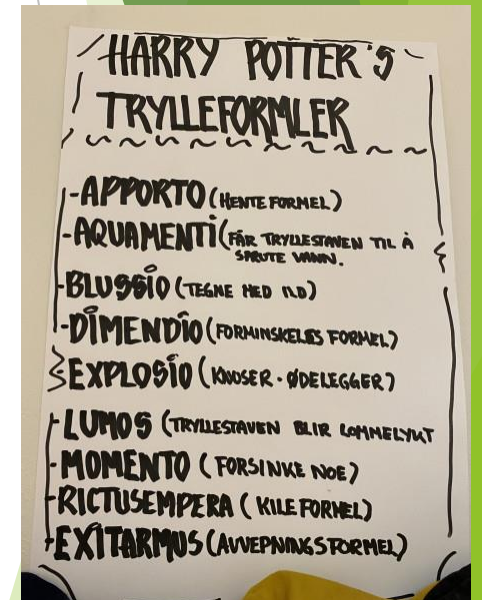 HARRY POTTER'S
TRYLLEFORMLER
-APPORTO (HENTE FORMEL)
-AQUAMENTI (FÅR TRYLLESTAVEN TIL Å
SPRUTE VANN.
-BLUSSIO (TEGNE MED ILD)
-DIMENDIO (FORMINSKELES FORMEL)
EXPLOSIO (KNUSER - ØDELEGGER)
-LUMOS (TRYLLESTAVEN BLIR LOMMELYKT
-MOMENTO (FORSINKE NOE)
-RICTUSEMPERA (KILE FORMEL)
-EXITARMUS (AVVEPNINGSFORMEL)